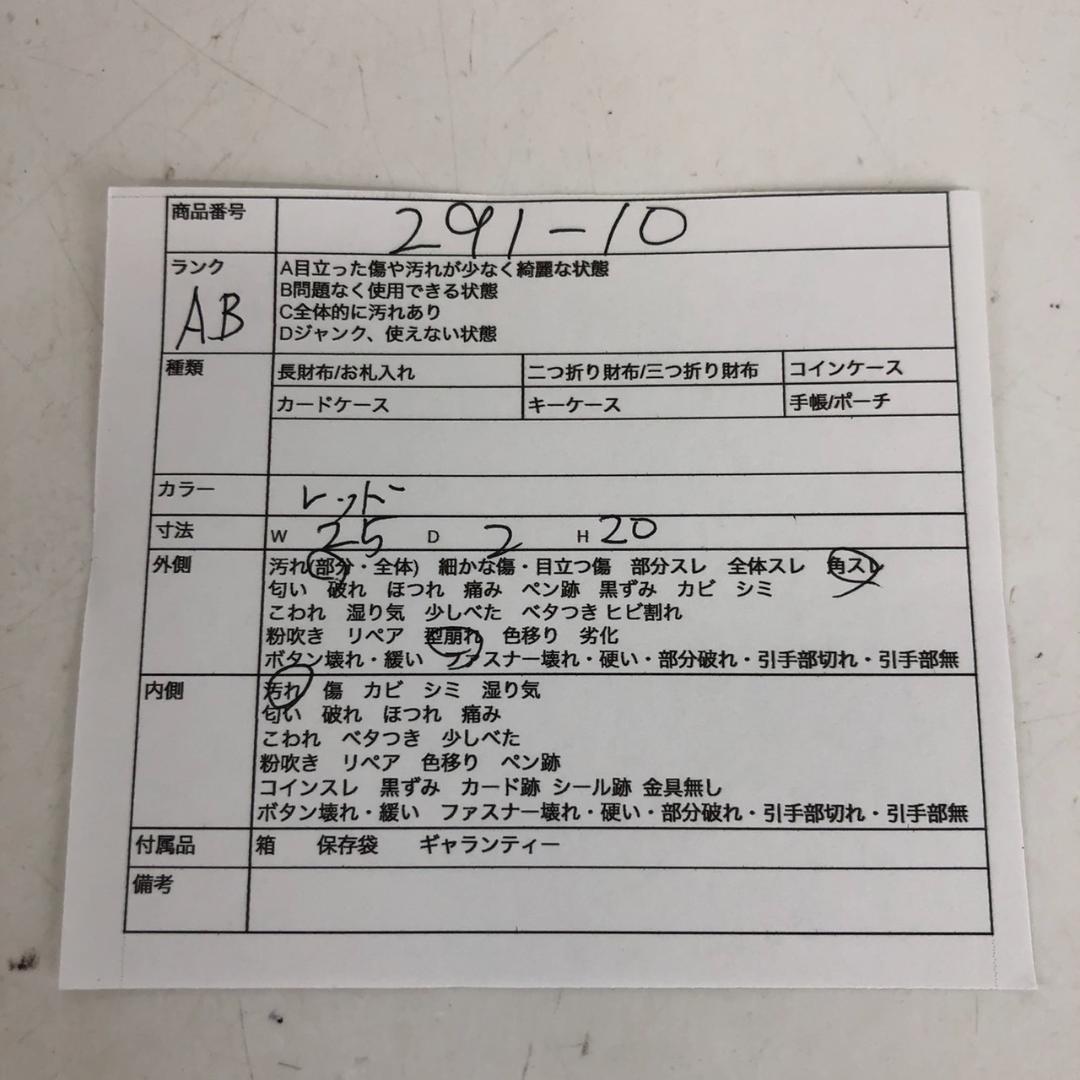 商品番号 291-10
ランク AB
A目立った傷や汚れが少なく綺麗な状態
B問題なく使用できる状態
C全体的に汚れあり
Dジャンク、使えない状態
種類 長財布/お札入れ 二つ折り財布/三つ折り財布 コインケース
カードケース キーケース 手帳/ポーチ
カラー レッド
寸法 W 25 D 2 H 20
外側 汚れ(部分・全体) 細かな傷・目立つ傷 部分スレ 全体スレ 角スレ
匂い 破れ ほつれ 痛み ペン跡 黒ずみ カビ シミ
こわれ 湿り気 少しべた ベタつき ヒビ割れ
粉吹き リペア 型崩れ 色移り 劣化
ボタン壊れ・緩い ファスナー壊れ・硬い・部分破れ・引手部切れ・引手部無
内側 汚れ 傷 カビ シミ 湿り気
匂い 破れ ほつれ 痛み
こわれ ベタつき 少しべた
粉吹き リペア 色移り ペン跡
コインスレ 黒ずみ カード跡 シール跡 金具無し
ボタン壊れ・緩い ファスナー壊れ・硬い・部分破れ・引手部切れ・引手部無
付属品 箱 保存袋 ギャランティー
備考